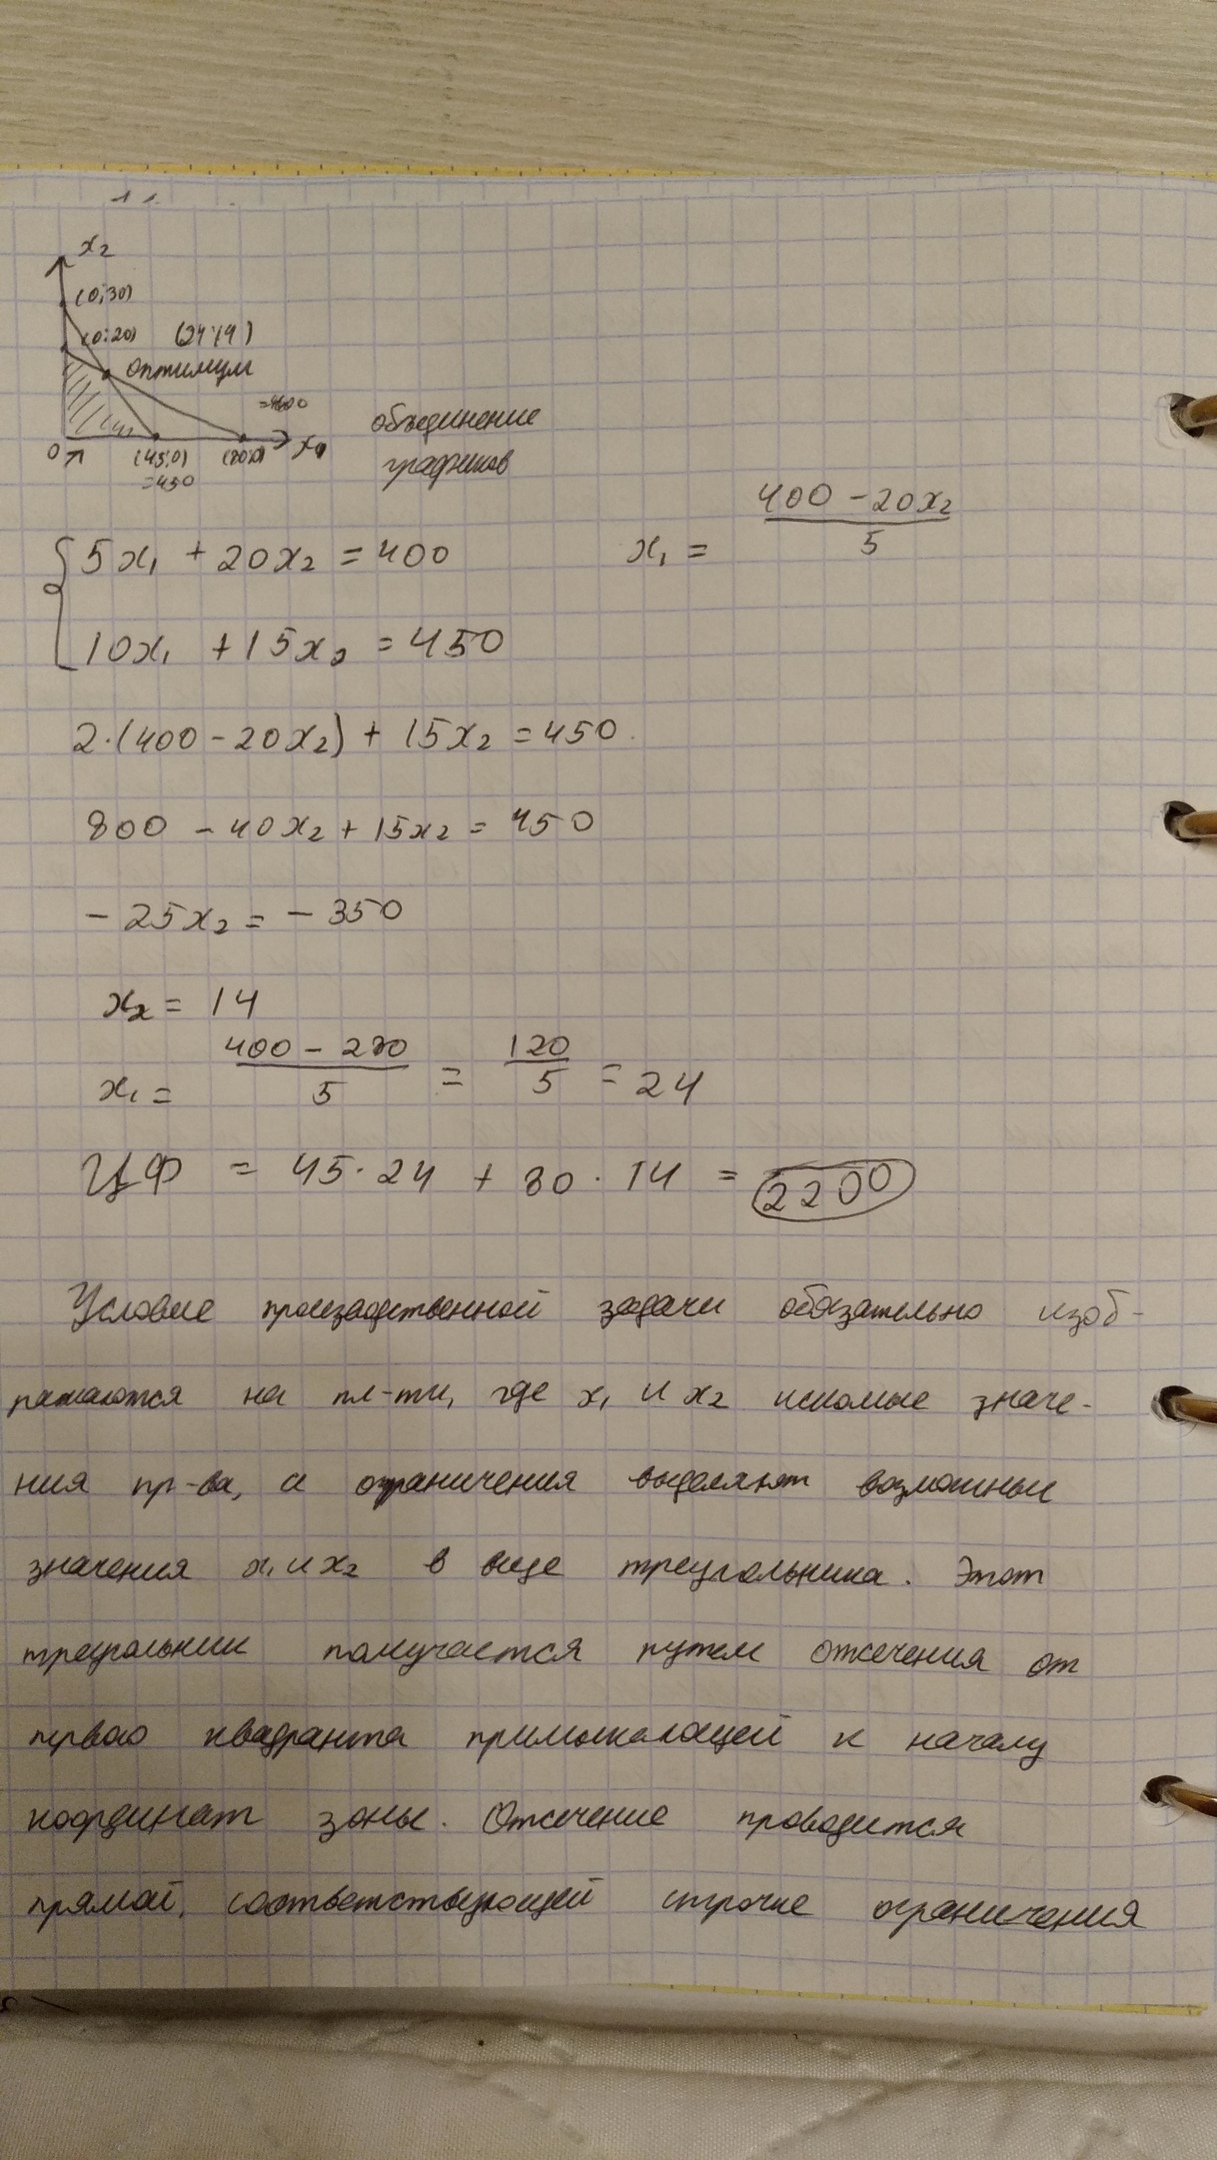 x₂
(0;30)
(0;20) (24;14)
оптимум
=400
объединение
0 (45;0) (80;0) x₁
=450
графиков
{ 5x₁ + 20x₂ = 400
x₁ = (400 - 20x₂)/5
10x₁ + 15x₂ = 450
2·(400 - 20x₂) + 15x₂ = 450
800 - 40x₂ + 15x₂ = 450
- 25x₂ = - 350
x₂ = 14
x₁ = (400 - 280)/5 = 120/5 = 24
ЦФ = 45·24 + 80·14 = 2200
Условие производственной задачи обязательно изоб-
ражаются на пл-ти, где x₁ и x₂ искомые значе-
ния пр-ва, а ограничения выделяют возможные
значения x₁ и x₂ в виде треугольника. Этот
треугольник получается путем отсечения от
первого квадранта примыкающей к началу
координат зоны. Отсечение проводится
прямой, соответствующей строчке ограничения